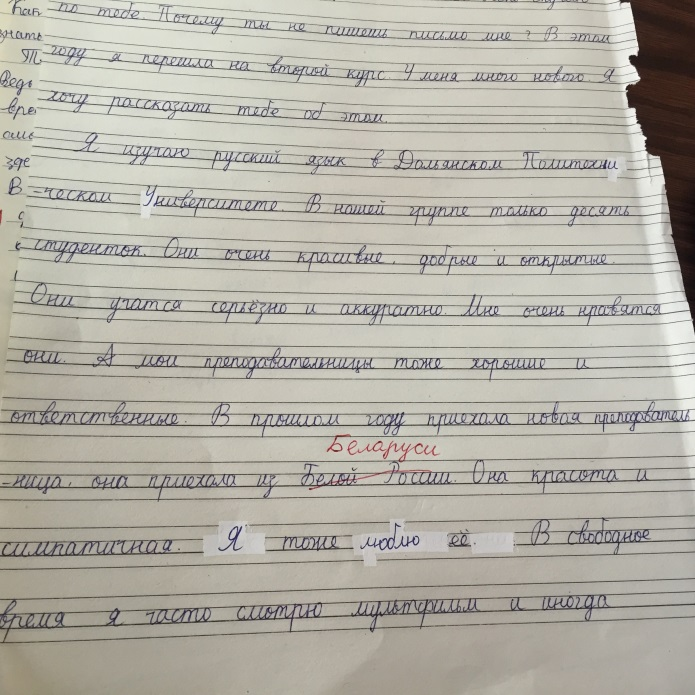 по тебе. Почему ты не пишешь письмо мне? В этом
году я перешла на второй курс. У меня много нового. Я
хочу рассказать тебе об этом.
Я изучаю русский язык в Дальянском Политехни
-ческом Университете. В нашей группе только десять
студенток. Они очень красивые, добрые и открытые.
Они учатся серьёзно и аккуратно. Мне очень нравятся
они. А мои преподавательницы тоже хорошие и
ответственные. В прошлом году приехала новая преподаватель
Беларуси
-ница, она приехала из Белой России. Она красота и
симпатичная. Я тоже люблю её. В свободное
время я часто смотрю мультфильм и иногда